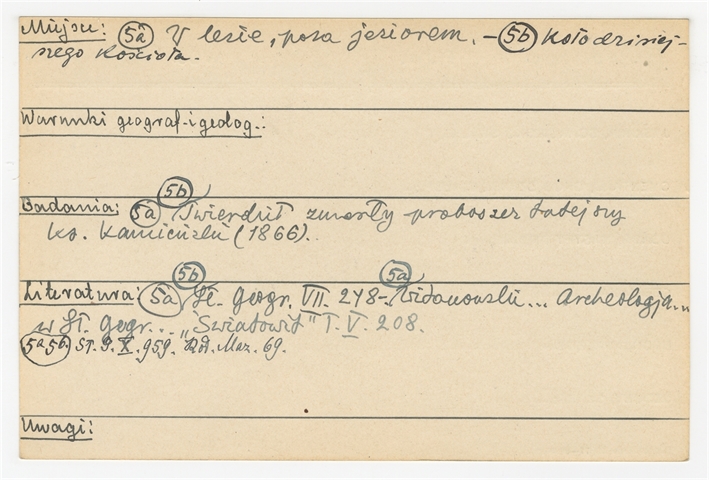 Miejsce: 5a W lesie, poza jeziorem. - 5b Koło dzisiej-
szego Kościoła.
Warunki geograf. i geolog.:
5b
Badania: 5a Twierdził zmarły proboszcz tutejszy
ks. Kamiński (1866).
5b 5a
Literatura: 5a Sł. Geogr. VII. 278 - Widanowski... Archeologja...
w Sł. Geogr... "Światowit" T. V. 208.
5a 5b. Sł. G. X. 959. Maz. 69.
Uwagi: